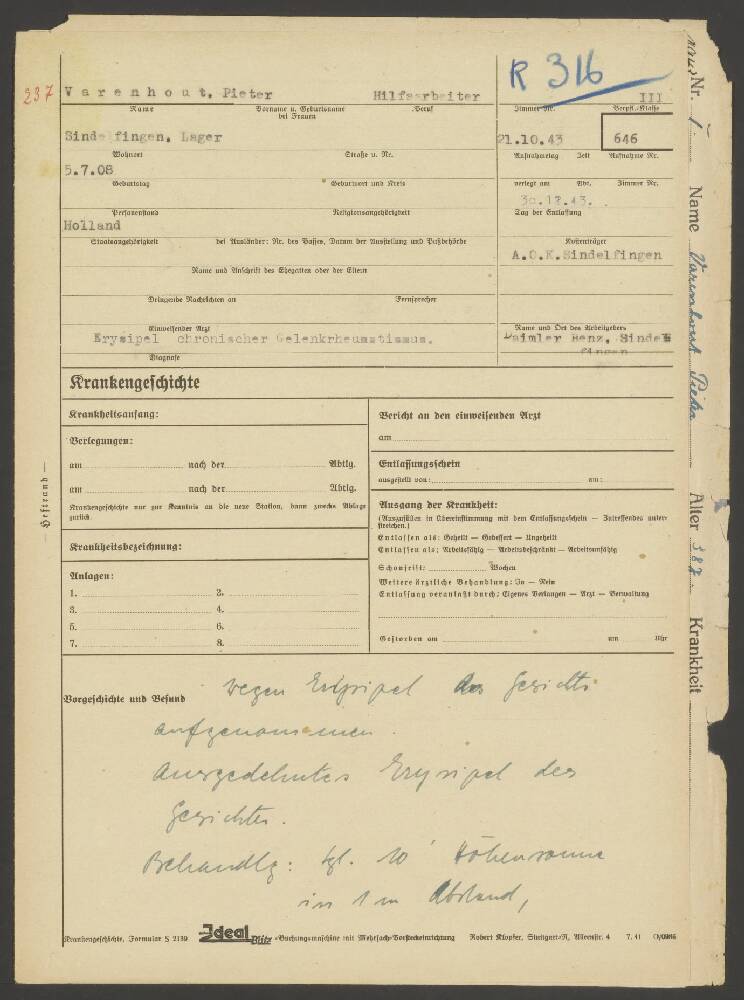 237
R 316
V a r e n h o u t, Pieter Hilfsarbeiter III
Name Vorname u. Geburtsname bei Frauen Beruf Zimmer-Nr. Verpfl.-Klasse
Sindelfingen, Lager 21.10.43 646
Wohnort Straße u. Nr. Aufnahmetag Zeit Aufnahme Nr.
5.7.08
Geburtstag Geburtsort und Kreis verlegt am Abt. Zimmer Nr.
30.12.43.
Personenstand Religionsangehörigkeit Tag der Entlassung
Holland
Staatsangehörigkeit bei Ausländer: Nr. des Passes, Datum der Ausstellung und Paßbehörde Kostenträger
A.O.K.Sindelfingen
Name und Anschrift des Ehegatten oder der Eltern
Dringende Nachrichten an Fernsprecher
Einweisender Arzt Name und Ort des Arbeitgebers
Erysipel chronischer Gelenkrheumatismus. Daimler Benz, Sindel
fingen
Diagnose
Krankengeschichte
Krankheitsanfang:
Verlegungen:
am nach der Abtlg.
am nach der Abtlg.
Krankengeschichte nur zur Kenntnis an die neue Station, dann zwecks Ablage
zurück.
Krankheitsbezeichnung:
Anlagen:
1. 2.
3. 4.
5. 6.
7. 8.
Bericht an den einweisenden Arzt
am
Entlassungsschein
ausgestellt von: am:
Ausgang der Krankheit:
(Auszufüllen in Übereinstimmung mit dem Entlassungsschein — Zutreffendes unter-
streichen.)
Entlassen als: Geheilt — Gebessert — Ungeheilt
Entlassen als: Arbeitsfähig — Arbeitsbeschränkt — Arbeitsunfähig
Schonfrist: Wochen
Weitere ärztliche Behandlung: Ja — Nein
Entlassung veranlaßt durch: Eigenes Verlangen — Arzt — Verwaltung
Gestorben am um Uhr
Vorgeschichte und Befund wegen Erysipel des Gesichts
aufgenommen.
Ausgedehntes Erysipel des
Gesichtes.
Behandlg: tgl. 10' Höhensonne
in 1 m Abstand,
Krankengeschichte, Formular S 2139 Ideal Blitz-Buchungsmaschine mit Mehrfach-Vorsteckeinrichtung Robert Klopfer, Stuttgart-N, Alleenstr. 4 7. 41
— Heftrand —
Nr. 1 Name Varenhout Pieter Alter 387 Krankheit